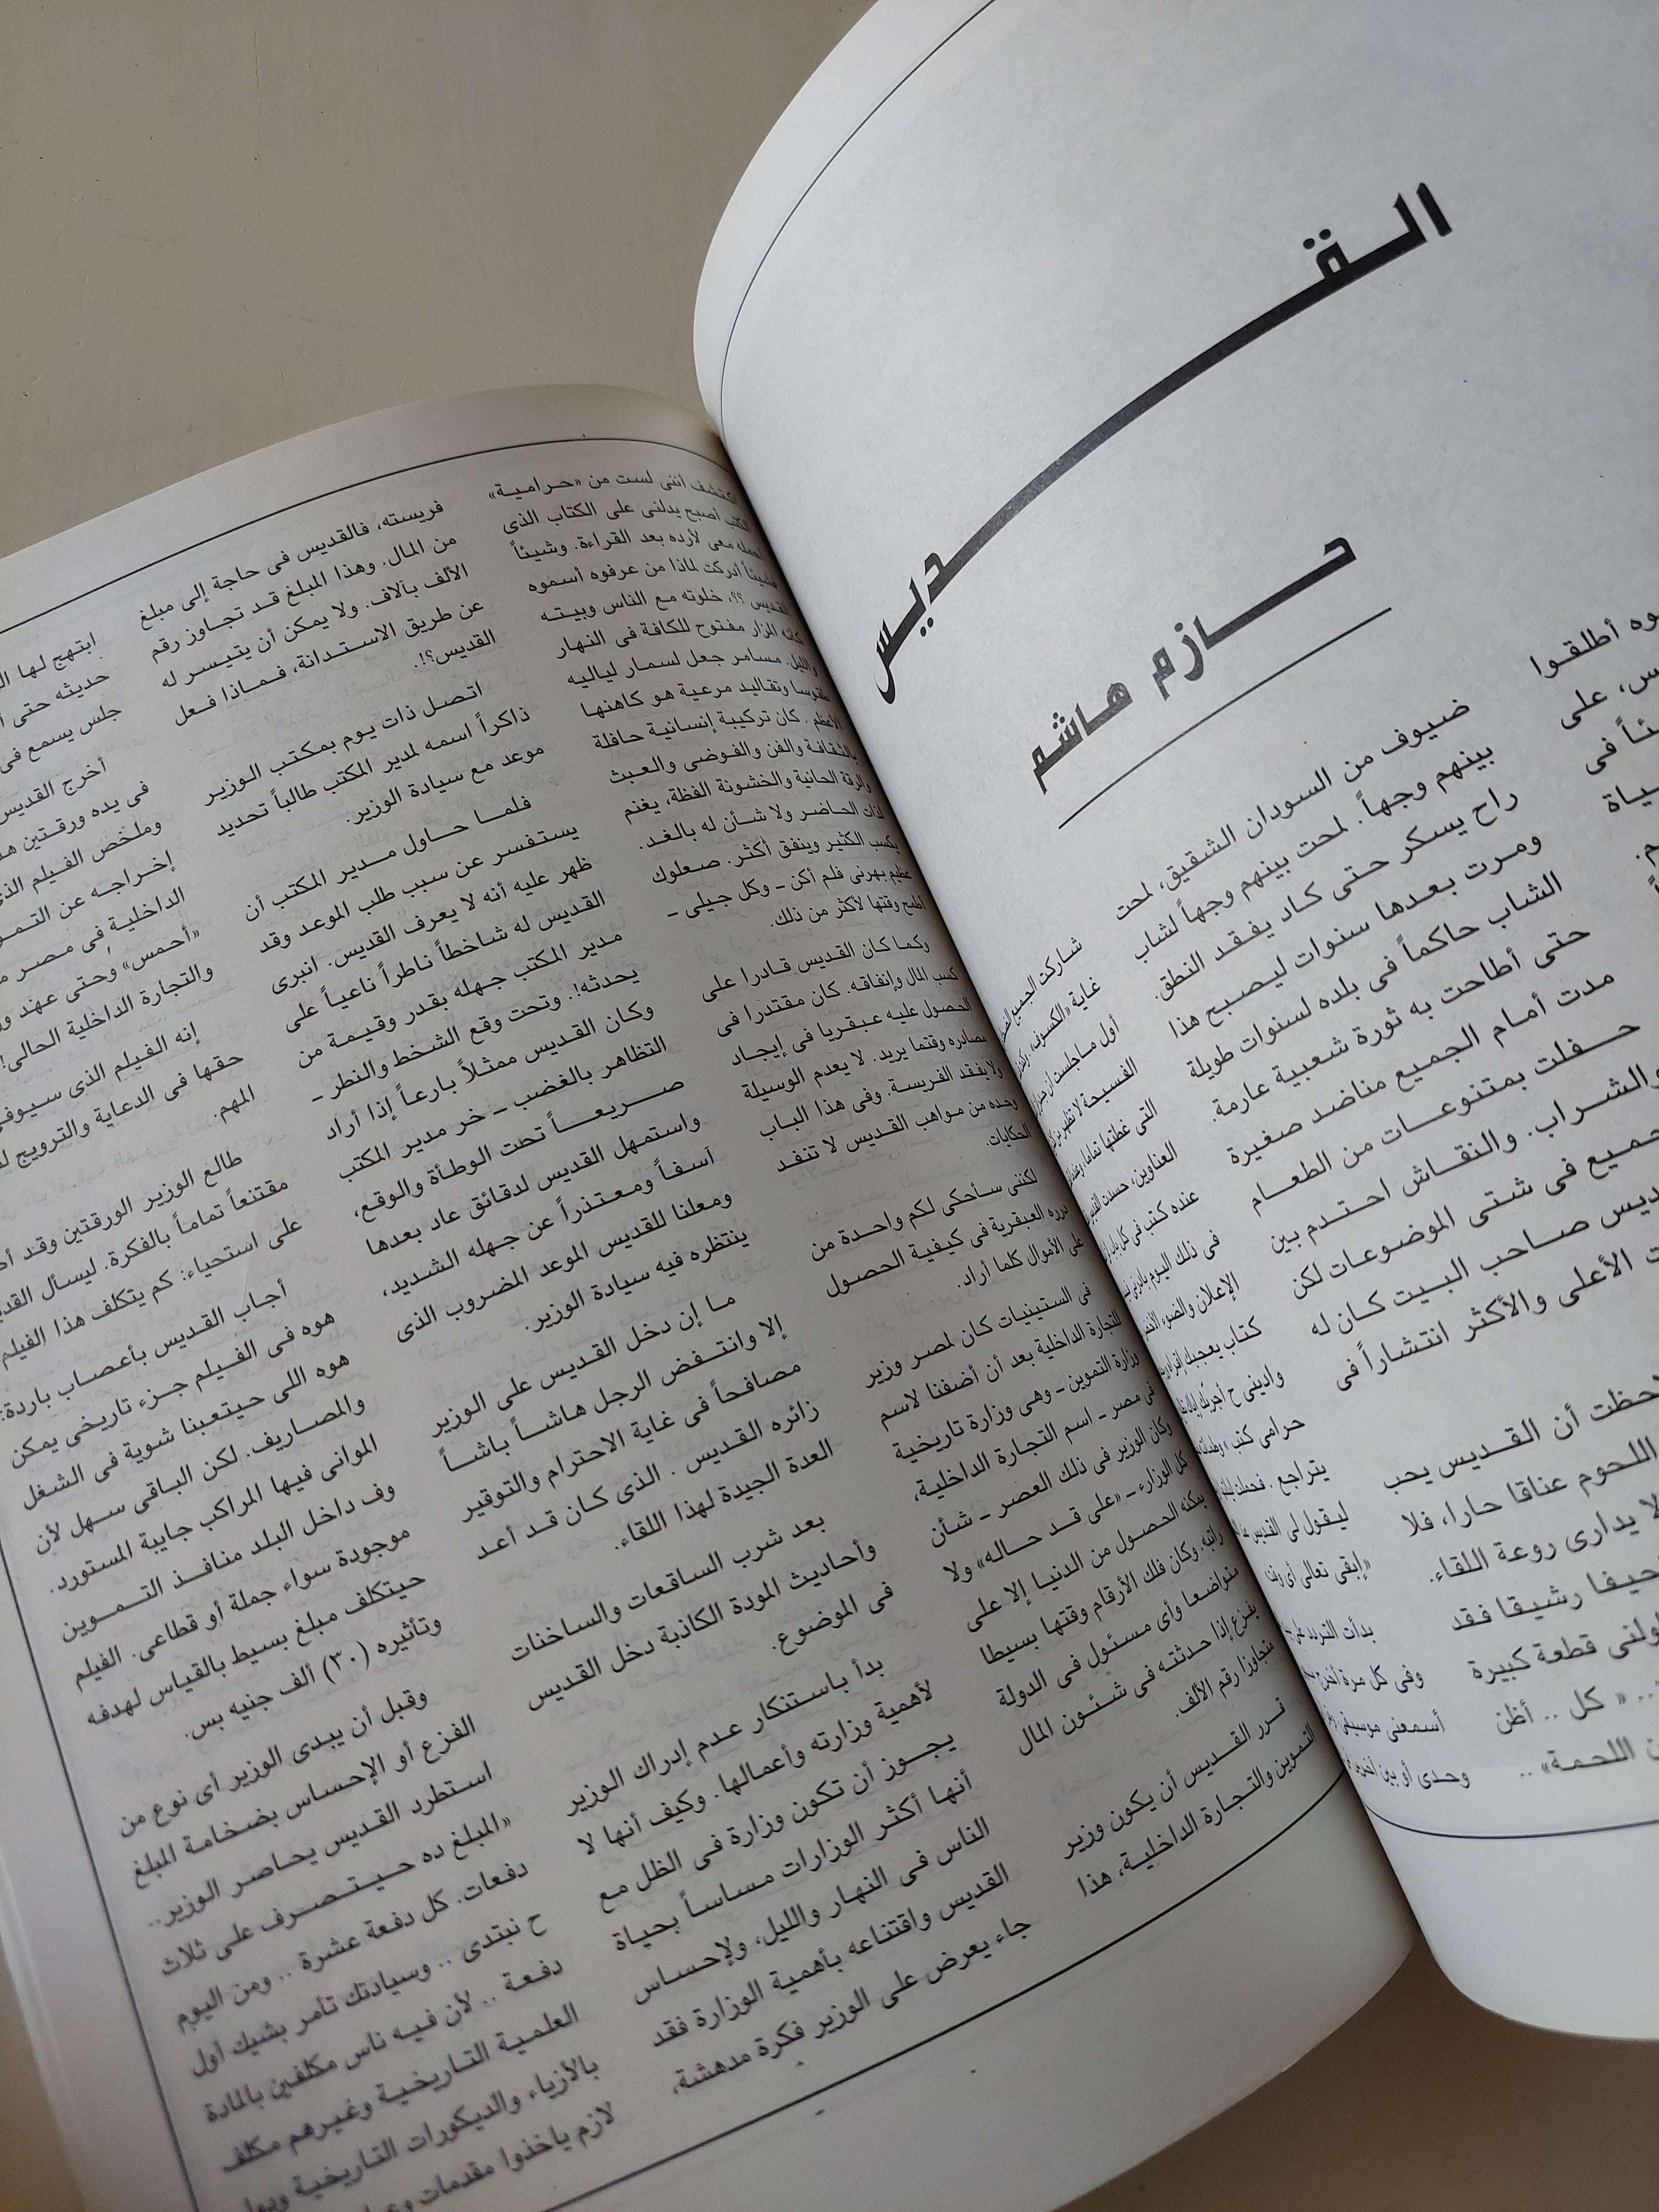 القديس
حازم هاشم
وه أطلقوا
س، على
ئاً فى
ياة
ضيوف من السودان الشقيق، لمحت
بينهم وجهاً. لمحت بينهم وجهاً لشاب
راح يسكر حتى كاد يفقد النطق.
ومرت بعدها سنوات ليصبح هذا
الشاب حاكماً فى بلده لسنوات طويلة
حتى أطاحت به ثورة شعبية عارمة.
مدت أمام الجميع مناضد صغيرة
حفلت بمتنوعات من الطعام
والشراب. والنقاش احتدم بين
جميع فى شتى الموضوعات لكن
ديس صاحب البيت كان له
ت الأعلى والأكثر انتشاراً فى
احظت أن القديس يحب
اللحوم عناقا حارا، فلا
لا يدارى روعة اللقاء.
حيفا رشيقا فقد
ولنى قطعة كبيرة
.. « كل .. أظن
ن اللحمة» ..
شاركت الجميع
غاية «الكسوف»
أول ما جلست
الفسيحة لا تظهر
التى غطتها تماما
العناوين، حسدت
عنده كتب فى كل
فى ذلك اليوم
الإعلان والضوء
كتاب يعجبك
وادينى ح أجربك
حرامى كتب
يتراجع .
ليقول لى القديس
«إبقى تعالى أى وقت
بدأت التردد على
وفى كل مرة أخرج
أسمعنى موسيقى
وحدى أو بين آخرين
أننى لست من «حرامية»
الكتب أصبح يدلنى على الكتاب الذى
أحمله معى لأرده بعد القراءة. وشيئاً
فشيئاً أدركت لماذا من عرفوه أسموه
القديس ؟؟، خلوته مع الناس وبيته
كأنه المزار مفتوح للكافة فى النهار
والليل. مسامر جعل لسمار لياليه
طقوسا وتقاليد مرعية هو كاهنها
الأعظم . كان تركيبة إنسانية حافلة
بالثقافة والفن والفوضى والعبث
والرقة الحانية والخشونة الفظة، يغنم
لذات الحاضر ولا شأن له بالغد.
يكسب الكثير وينفق أكثر. صعلوك
عظيم بهرنى فلم أكن ـ وكل جيلى ـ
أطمح وقتها لأكثر من ذلك.
وكما كان القديس قادرا على
كسب المال وإنفاقه. كان مقتدرا فى
الحصول عليه عبقريا فى إيجاد
مصادره وقتما يريد. لا يعدم الوسيلة
ولا يفقد الفريسة. وفى هذا الباب
وحده من مواهب القديس لا تنفد
الحكايات.
لكننى سأحكى لكم واحدة من
العبقرية فى كيفية الحصول
على الأموال كلما أراد.
فى الستينيات كان لمصر وزير
للتجارة الداخلية بعد أن أضفنا لاسم
وزارة التموين ـ وهى وزارة تاريخية
فى مصر ـ اسم التجارة الداخلية،
وكان الوزير فى ذلك العصر ـ شأن
كل الوزراء ـ «على قد حاله» ولا
يمكنه الحصول من الدنيا إلا على
راتبه. وكان فلك الأرقام وقتها بسيطا
متواضعا وأى مسئول فى الدولة
يفزع إذا حدثته فى شئون المال
متجاوزا رقم الألف.
قرر القديس أن يكون وزير
التموين والتجارة الداخلية، هذا
فريسته، فالقديس فى حاجة إلى مبلغ
من المال. وهذا المبلغ قد تجاوز رقم
الألف بآلاف. ولا يمكن أن يتيسر له
عن طريق الاستدانة، فماذا فعل
القديس؟!.
اتصل ذات يوم بمكتب الوزير
ذاكراً اسمه لمدير المكتب طالباً تحديد
موعد مع سيادة الوزير.
فلما حاول مدير المكتب أن
يستفسر عن سبب طلب الموعد وقد
ظهر عليه أنه لا يعرف القديس. انبرى
القديس له شاخطاً ناطراً ناعياً على
مدير المكتب جهله بقدر وقيمة من
يحدثه!. وتحت وقع الشخط والنطر ـ
وكان القديس ممثلاً بارعاً إذا أراد
التظاهر بالغضب ـ خر مدير المكتب
صريعاً تحت الوطأة والوقع،
واستمهل القديس لدقائق عاد بعدها
آسفاً ومعتذراً عن جهله الشديد،
ومعلنا للقديس الموعد المضروب الذى
ينتظره فيه سيادة الوزير.
ما إن دخل القديس على الوزير
إلا وانتفض الرجل هاشاً باشاً
مصافحاً فى غاية الاحترام والتوقير
زائره القديس . الذى كان قد أعد
العدة الجيدة لهذا اللقاء.
بعد شرب الساقعات والساخنات
وأحاديث المودة الكاذبة دخل القديس
فى الموضوع.
بدأ باستنكار عدم إدراك الوزير
لأهمية وزارته وأعمالها. وكيف أنها لا
يجوز أن تكون وزارة فى الظل مع
أنها أكثر الوزارات مساساً بحياة
الناس فى النهار والليل، ولإحساس
القديس واقتناعه بأهمية الوزارة فقد
جاء يعرض على الوزير فكرة مدهشة،
ابتهج لها
حديثه حتى
جلس يسمع فى
أخرج القديس
فى يده ورقتين
وملخص الفيلم الذى
إخراجه عن
الداخلية فى مصر
«أحمس» وحتى عهد
والتجارة الداخلية الحالى!
إنه الفيلم الذى
حقها فى الدعاية والترويج
المهم.
طالع الوزير الورقتين وقد
مقتنعاً تماماً بالفكرة. ليسأل
على استحياء: كم يتكلف هذا الفيلم
أجاب القديس بأعصاب باردة:
هوه فى الفيلم جزء تاريخى يمكن
هوه اللى حيتعبنا شوية فى الشغل
والمصاريف. لكن الباقى سهل لأن
الموانى فيها المراكب جايبة المستورد.
وف داخل البلد منافذ التموين
موجودة سواء جملة أو قطاعى. الفيلم
حيتكلف مبلغ بسيط بالقياس لهدفه
وتأثيره (٣٠) ألف جنيه بس.
وقبل أن يبدى الوزير أى نوع من
الفزع أو الإحساس بضخامة المبلغ
استطرد القديس يحاصر الوزير..
«المبلغ ده حيتصرف على ثلاث
دفعات. كل دفعة عشرة .. ومن اليوم
ح نبتدى .. وسيادتك تأمر بشيك أول
دفعة .. لأن فيه ناس مكلفين بالمادة
العلمية التاريخية وغيرهم مكلف
بالأزياء والديكورات التاريخية
لازم ياخذوا مقدمات